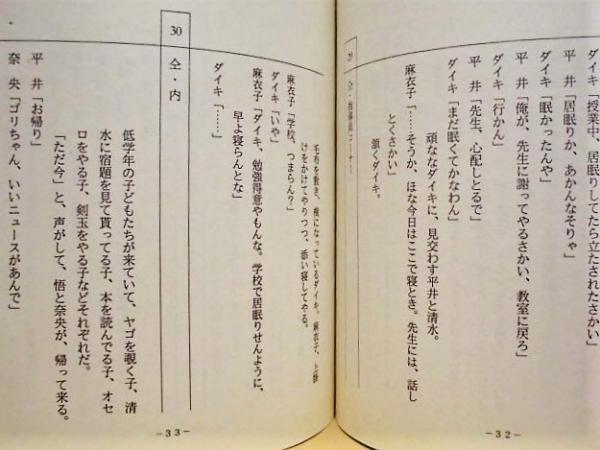 ダイキ「授業中、居眠りしてたら立たされたさかい」
平 井「居眠りか、あかんなそりゃ」
ダイキ「眠かったんや」
平 井「俺が、先生に謝ってやるさかい、教室に戻ろ」
ダイキ「行かん」
平 井「先生、心配しとるで」
ダイキ「まだ眠くてかなわん」
頑ななダイキに、見交わす平井と清水。
麻衣子「……そうか、ほな今日はここで寝とき。先生には、話し
とくさかい」
頷くダイキ。
29
－32－
毛布を敷き、横になっているダイキ。麻衣子、上掛
けをかけてやりつつ、添い寝してやる。
麻衣子「学校、つまらん？」
ダイキ「いや」
麻衣子「ダイキ、勉強得意やもんな。学校で居眠りせんように、
早よ寝らんとな」
ダイキ「……」
30 仝・内
低学年の子どもたちが来ていて、ヤゴを覗く子、清
水に宿題を見て貰ってる子、本を読んでる子、オセ
ロをやる子、剣玉をやる子などそれぞれだ。
「ただ今」と、声がして、悟と奈央が、帰って来る。
平 井「お帰り」
奈 央「ゴリちゃん、いいニュースがあんで」
－33－